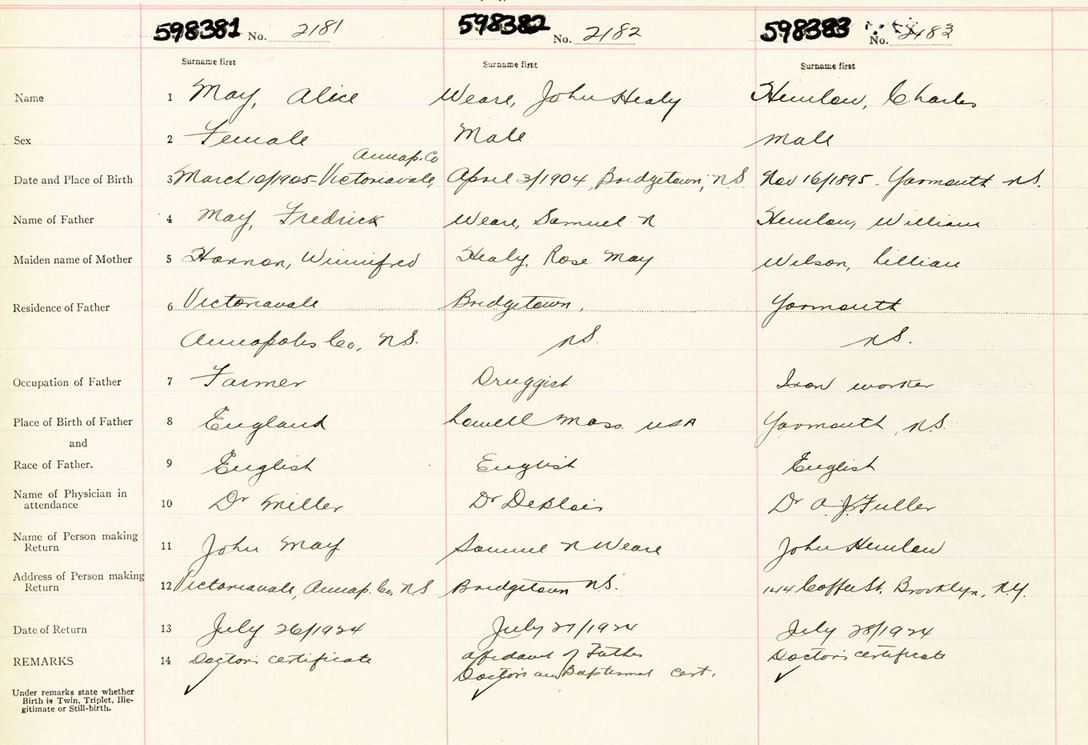 598381 No. 2181 598382 No. 2182 598383 No. 2183
Surname first Surname first Surname first
Name 1 May, Alice Weare, John Healy Hemlow, Charles
Sex 2 Female Male male
Annap. Co
Date and Place of Birth 3 March 10/1905 - Victoriavale April 3/1904, Bridgetown, N.S. Nov 16/1895 - Yarmouth N.S.
Name of Father 4 May, Fredrick Weare, Samuel N Hemlow, William
Maiden name of Mother 5 Hannon, Winnifred Healy, Rose May Wilson, Lillian
Residence of Father 6 Victoriavale Bridgetown, Yarmouth
Annapolis Co, N.S. N.S. N.S.
Occupation of Father 7 Farmer Druggist Iron worker
Place of Birth of Father 8 England Lowell Mass USA Yarmouth, N.S.
and
Race of Father. 9 English English English
Name of Physician in
attendance 10 Dr Miller Dr DeBlois Dr A.J. Fuller
Name of Person making
Return 11 John May Samuel N Weare John Hemlow
Address of Person making
Return 12 Victoriavale, Annap. Co, N.S Bridgetown N.S. 144 Coffee St. Brooklyn, N.Y.
Date of Return 13 July 26/1924 July 27/1924 July 28/1924
REMARKS 14 Doctor's certificate Affidavit of Father Doctor's certificate
Doctor's and Baptismal Cert.
Under remarks state whether
Birth is Twin, Triplet, Ille-
gitimate or Still-birth.